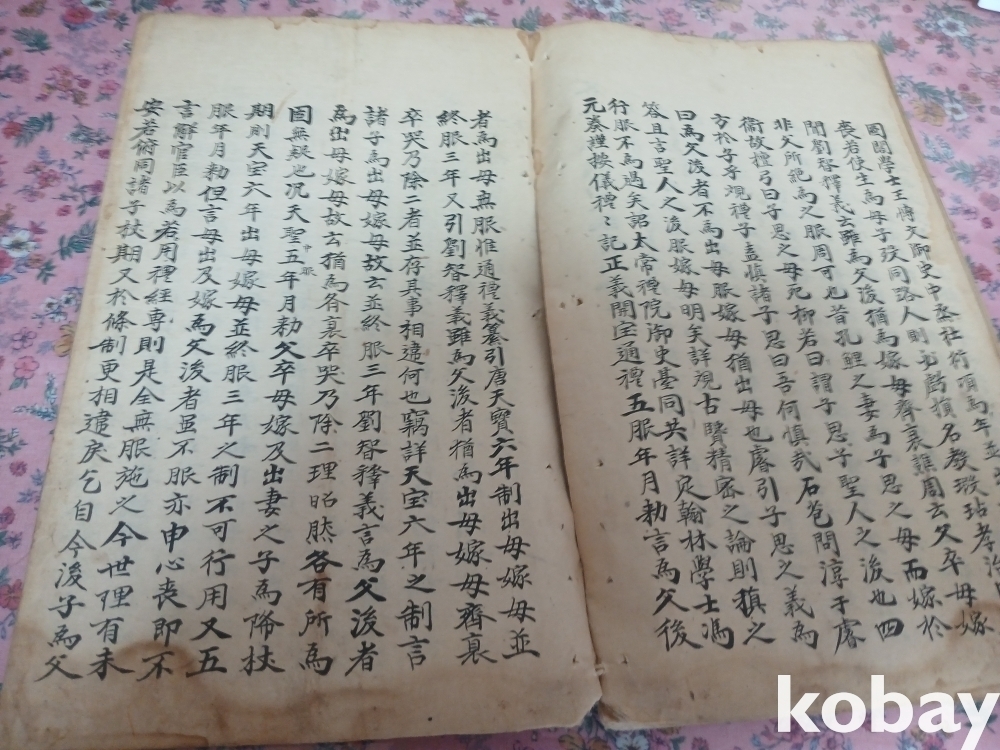 圖閣學士王博文御史中丞杜衍頃為年並
喪若使生為母子歿同路人則必虧損名教瑕玷孝治
聞劉智釋義云雖為父後猶為嫁母齊衰譙周云父卒母嫁
非父所絕為之服周可也昔孔鯉之妻為子思之母而嫁於
衛故禮弓曰子思之母死柳若曰謂子思子聖人之後也四
方於子乎觀禮子盍慎諸子思曰吾何慎哉石苞問淳于睿
曰為父後者不為出母服嫁母猶出母也睿引子思之義為
答且言聖人之後服嫁母明矣詳視古賢精密之論則稹之
行服不為過矣詔太常禮院御史臺同共詳定翰林學士馮
元奏理接儀禮〻記正義開宝通禮五服年月勑言為父後
者為出母無服惟通禮義纂引唐天寶六年制出母嫁母並
終服三年又引劉智釋義雖為父後者猶為出母嫁母齊衰
卒哭乃除二者並存其事相違何也竊詳天宝六年之制言
諸子為出母嫁母故云並終服三年劉智釋義言為父後者
為出母嫁母故云猶為齊衰卒哭乃除二理昭然各有所為
固無疑也况天聖中五服年月勑父卒母嫁及出妻之子為降杖
期則天宝六年出母嫁母並終服三年之制不可行用又五
服年月勑但言母出及嫁為父後者虽不服亦申心喪即不
言解官臣以為若用禮經専則是全無服施之今世理有未
安若俯同諸子杖期又於條制更相違戾乞自今後子為父
kobay